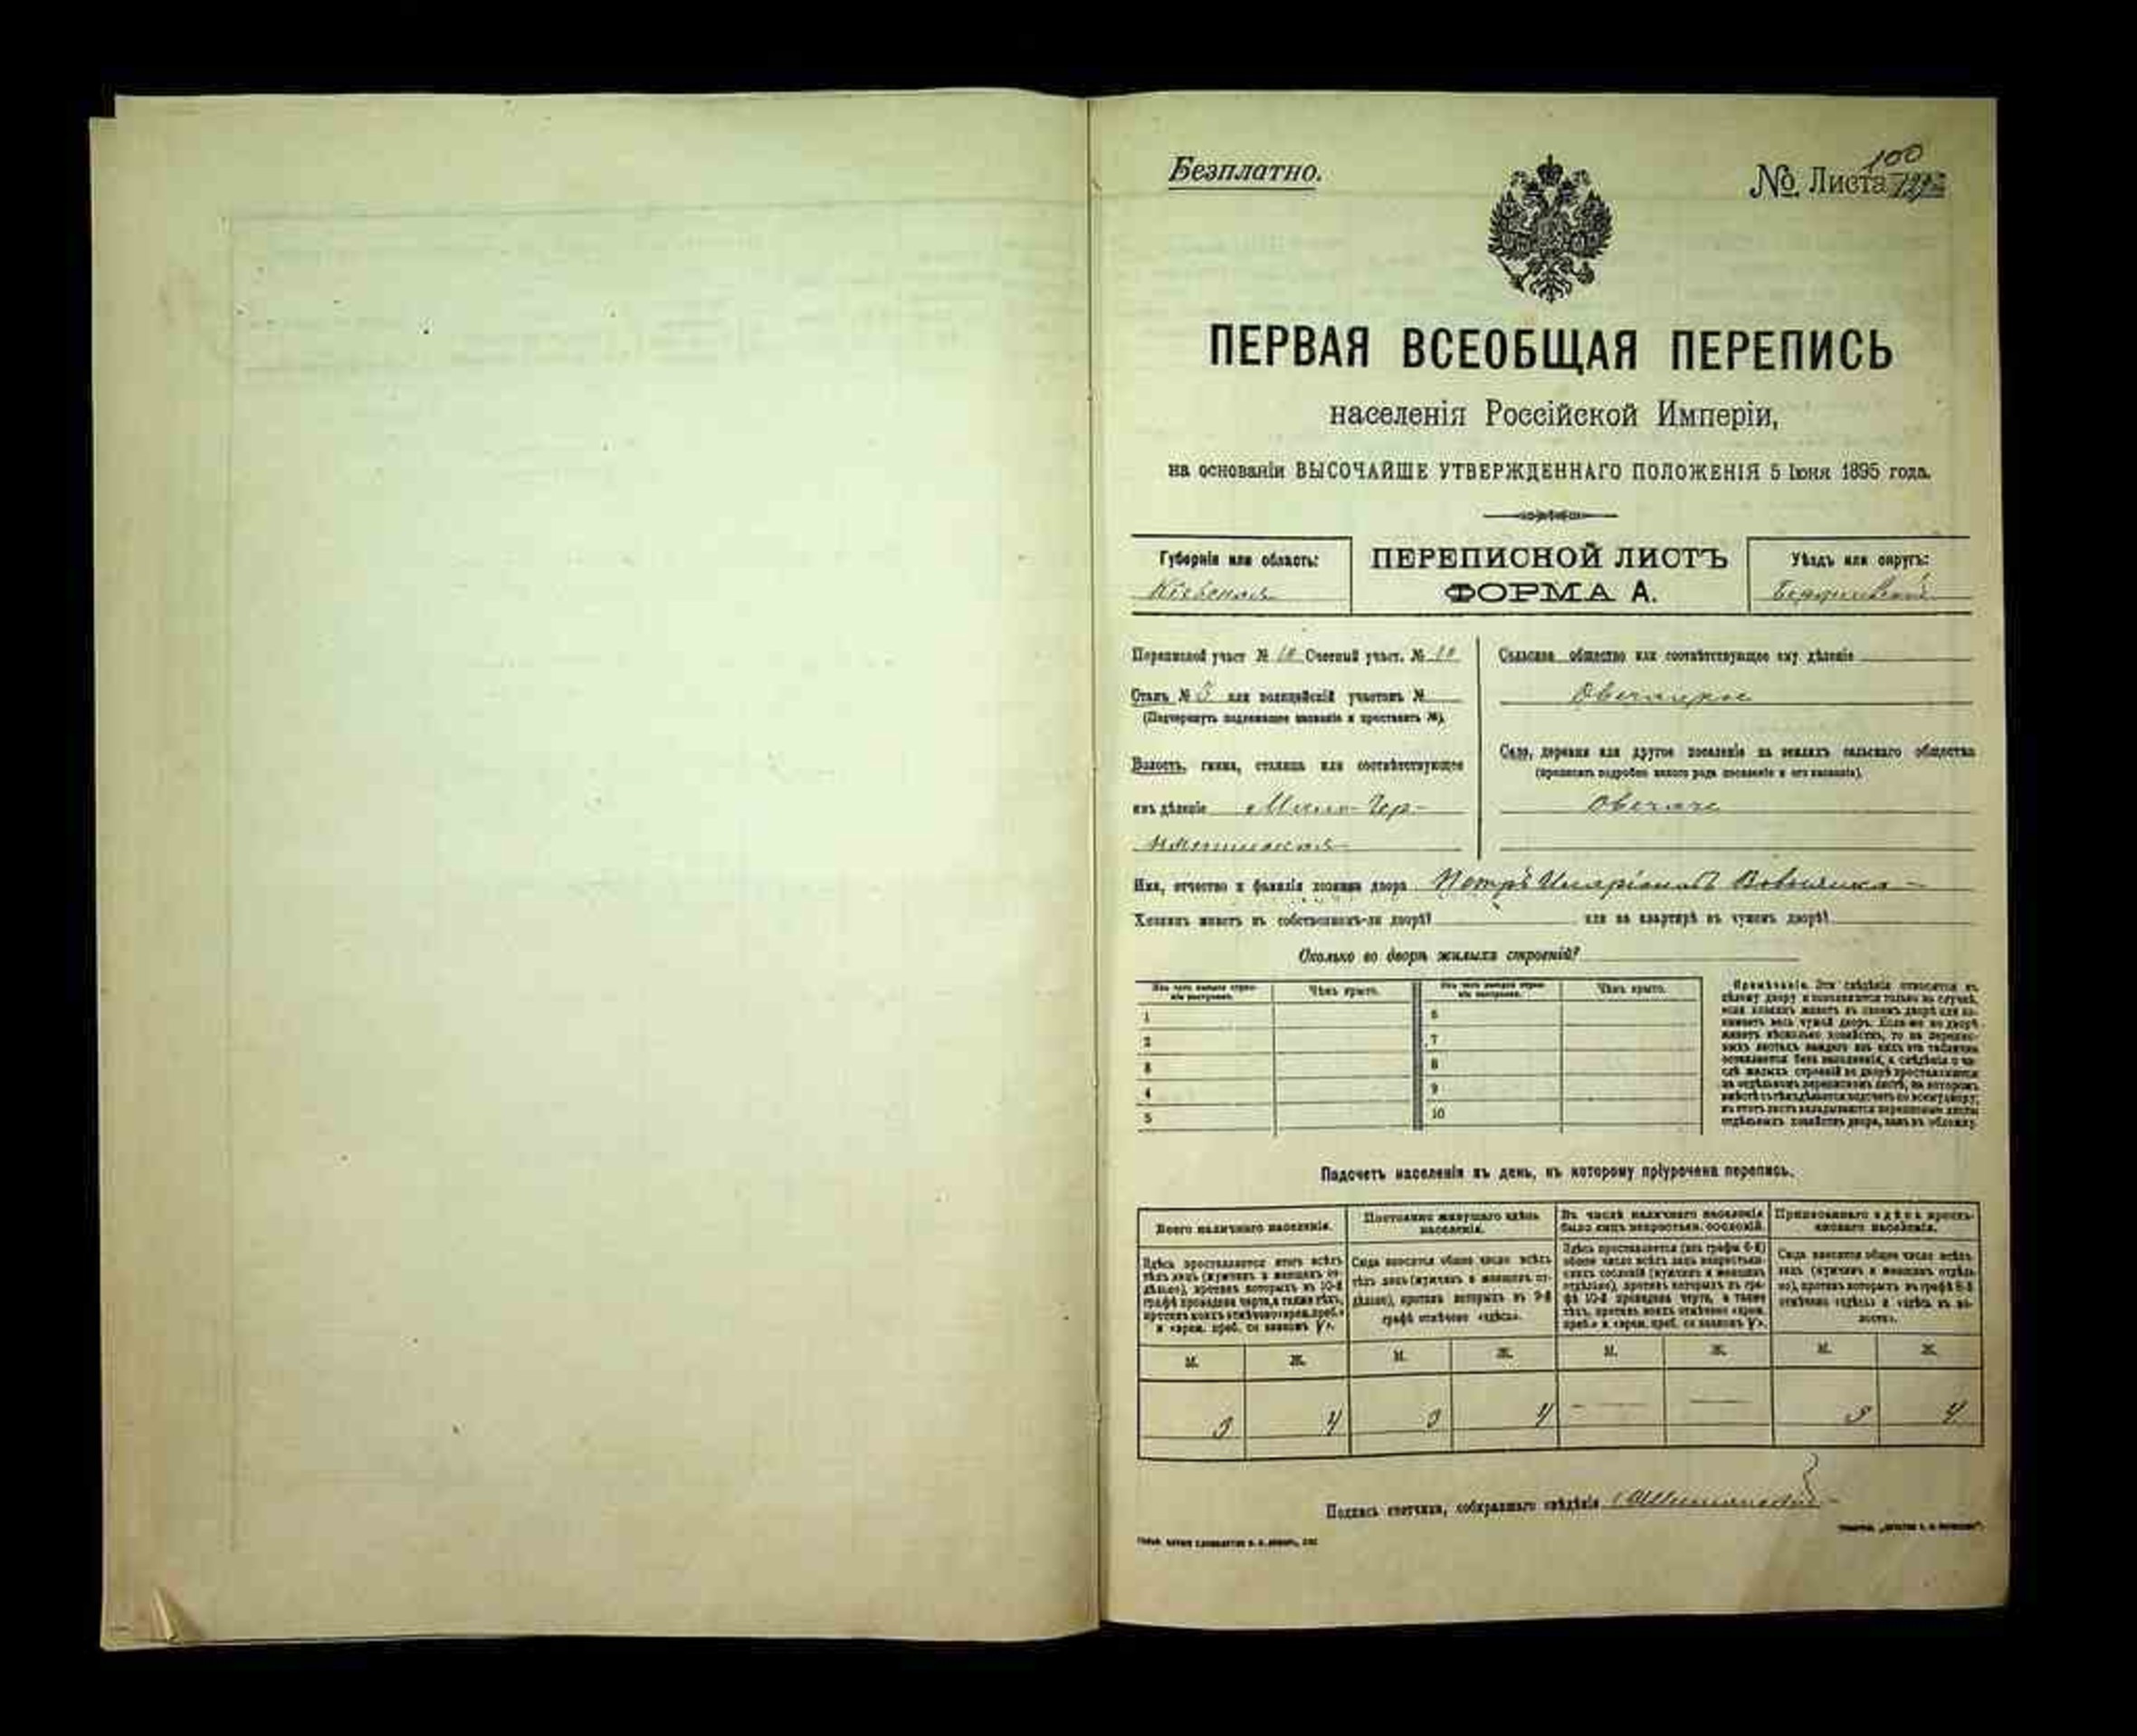 Безплатно.
100
№ Листа
ПЕРВАЯ ВСЕОБЩАЯ ПЕРЕПИСЬ
населенія Россійской Имперіи,
на основаніи ВЫСОЧАЙШЕ УТВЕРЖДЕННАГО ПОЛОЖЕНІЯ 5 Іюня 1895 года.
Губернія или область:
Кіевская
ПЕРЕПИСНОЙ ЛИСТЪ
ФОРМА А.
Уѣздъ или округъ:
Бердичевскій
Переписной участ № 10 Счетный участ. № 10
Станъ № 3 или полицейскій участокъ №
(Подчеркнуть подлежащее названіе и проставить №).
Волость, гмина, станица или соотвѣтствующее
имъ дѣленіе Мало-Чер-
Сельское общество или соотвѣтствующее ему дѣленіе
Село, деревня или другое поселеніе на земляхъ сельскаго общества
(прописать подробно какого рода поселеніе и его названіе).
Имя, отчество и фамилія хозяина двора Петръ Иларіоновъ
Хозяинъ живетъ въ собственномъ-ли дворѣ? или на квартирѣ въ чужомъ дворѣ?
Сколько во дворѣ жилыхъ строеній?
Изъ чего жилыя строенія построены.
Чѣмъ крыто.
Изъ чего жилыя строенія построены.
Чѣмъ крыто.
1 6
2 7
3 8
4 9
5 10
Примѣчаніе. Эти свѣдѣнія относятся къ
цѣлому двору и пополняются только въ случаѣ,
если хозяинъ живетъ въ своемъ дворѣ или за-
нимаетъ весь чужой дворъ. Если-же во дворѣ
живетъ нѣсколько хозяйствъ, то на перепис-
ныхъ листахъ каждаго изъ нихъ эта табличка
оставляется безъ заполненія, а свѣдѣнія о чи-
слѣ жилыхъ строеній во дворѣ проставляются
на отдѣльномъ переписномъ листѣ, на которомъ
вмѣстѣ съ тѣмъ дѣлается подсчетъ по всему двору;
въ этотъ листъ вкладываются переписные листы
отдѣльныхъ хозяйствъ двора, какъ въ обложку.
Подсчетъ населенія въ день, къ которому пріурочена перепись.
Всего наличнаго населенія.
Здѣсь проставляется итогъ всѣхъ
тѣхъ лицъ (мужчинъ и женщинъ от-
дѣльно), противъ которыхъ въ 10-й
графѣ проведена черта, а также тѣхъ,
противъ коихъ отмѣчено «врем. преб.»
и «врем. преб. со знакомъ V».
Постоянно живущаго здѣсь
населенія.
Сюда вносится общее число всѣхъ
тѣхъ лицъ (мужчинъ и женщинъ от-
дѣльно), противъ которыхъ въ 9-й
графѣ отмѣчено «здѣсь».
Въ числѣ наличнаго населенія
было лицъ некрестьян. сословій.
Здѣсь проставляется (изъ графы 6-й)
общее число всѣхъ лицъ некрестьян-
скихъ сословій (мужчинъ и женщинъ
отдѣльно), противъ которыхъ въ гра-
фѣ 10-й проведена черта, а также
тѣхъ, противъ коихъ отмѣчено «врем.
преб.» и «врем. преб. со знакомъ V».
Приписаннаго здѣсь кресть-
янскаго населенія.
Сюда вносится общее число всѣхъ
лицъ (мужчинъ и женщинъ отдѣль-
но), противъ которыхъ въ графѣ 8-й
отмѣчено «здѣсь» и «здѣсь въ во-
лости».
М. Ж. М. Ж. М. Ж. М. Ж.
3 4 3 4 — — 3 4
Подпись счетчика, собиравшаго свѣдѣнія